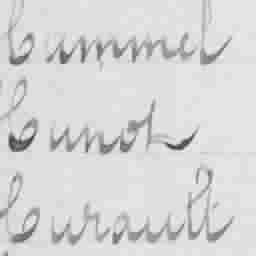 Cummel
Cunot
Curault